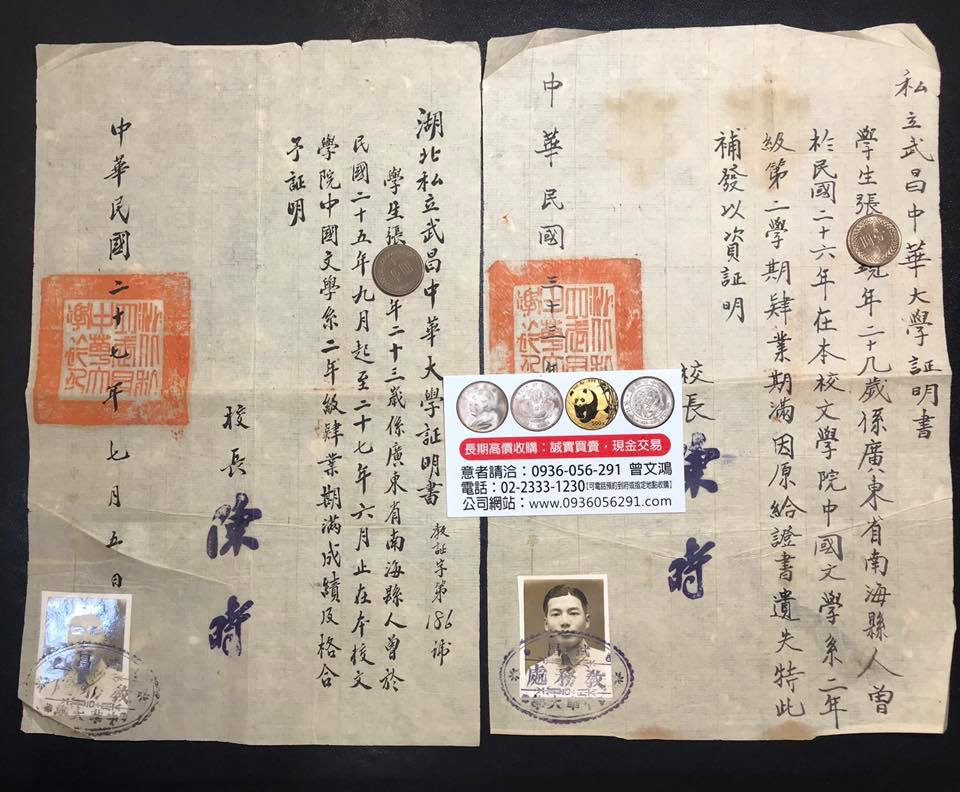 私立武昌中華大學証明書
學生張 現年二十九歲係廣東省南海縣人曾
於民國二十六年在本校文學院中國文學系二年
級第二學期肄業期滿因原給證書遺失特此
補發以資証明
校長 陳時
中華民國三十三年
教務處
長期高價收購：誠實買賣，現金交易
意者請洽：0936-056-291 曾文鴻
電話：02-2333-1230【可電話預約到府或指定地點收購】
公司網站：www.0936056291.com
湖北私立武昌中華大學証明書 教証字第186號
學生張 年二十三歲係廣東省南海縣人曾於
民國二十五年九月起至二十七年六月止在本校文
學院中國文學系二年級肄業期滿成績及格合
予証明
校長 陳時
中華民國二十七年七月五日